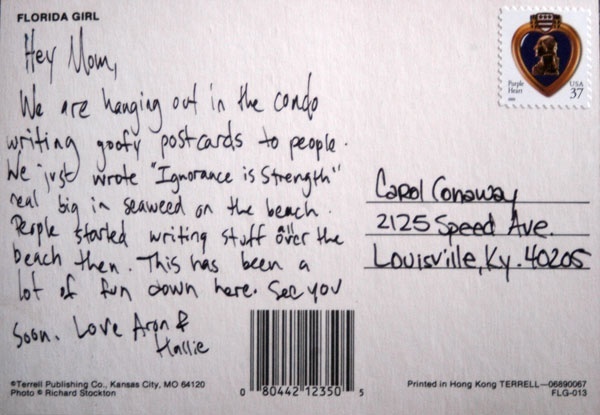 FLORIDA GIRL
Hey Mom,
We are hanging out in the condo
writing goofy postcards to people.
We just wrote "Ignorance is Strength"
real big in seaweed on the beach.
People started writing stuff all over the
beach then. This has been a
lot of fun down here. See you
Soon. Love Aron &
Hallie
Purple
Heart
USA
37
Carol Conaway
2125 Speed Ave.
Louisville, Ky. 40205
©Terrell Publishing Co., Kansas City, MO 64120
Photo © Richard Stockton
0 80442 12350 5
Printed in Hong Kong TERRELL—06890067
FLG-013